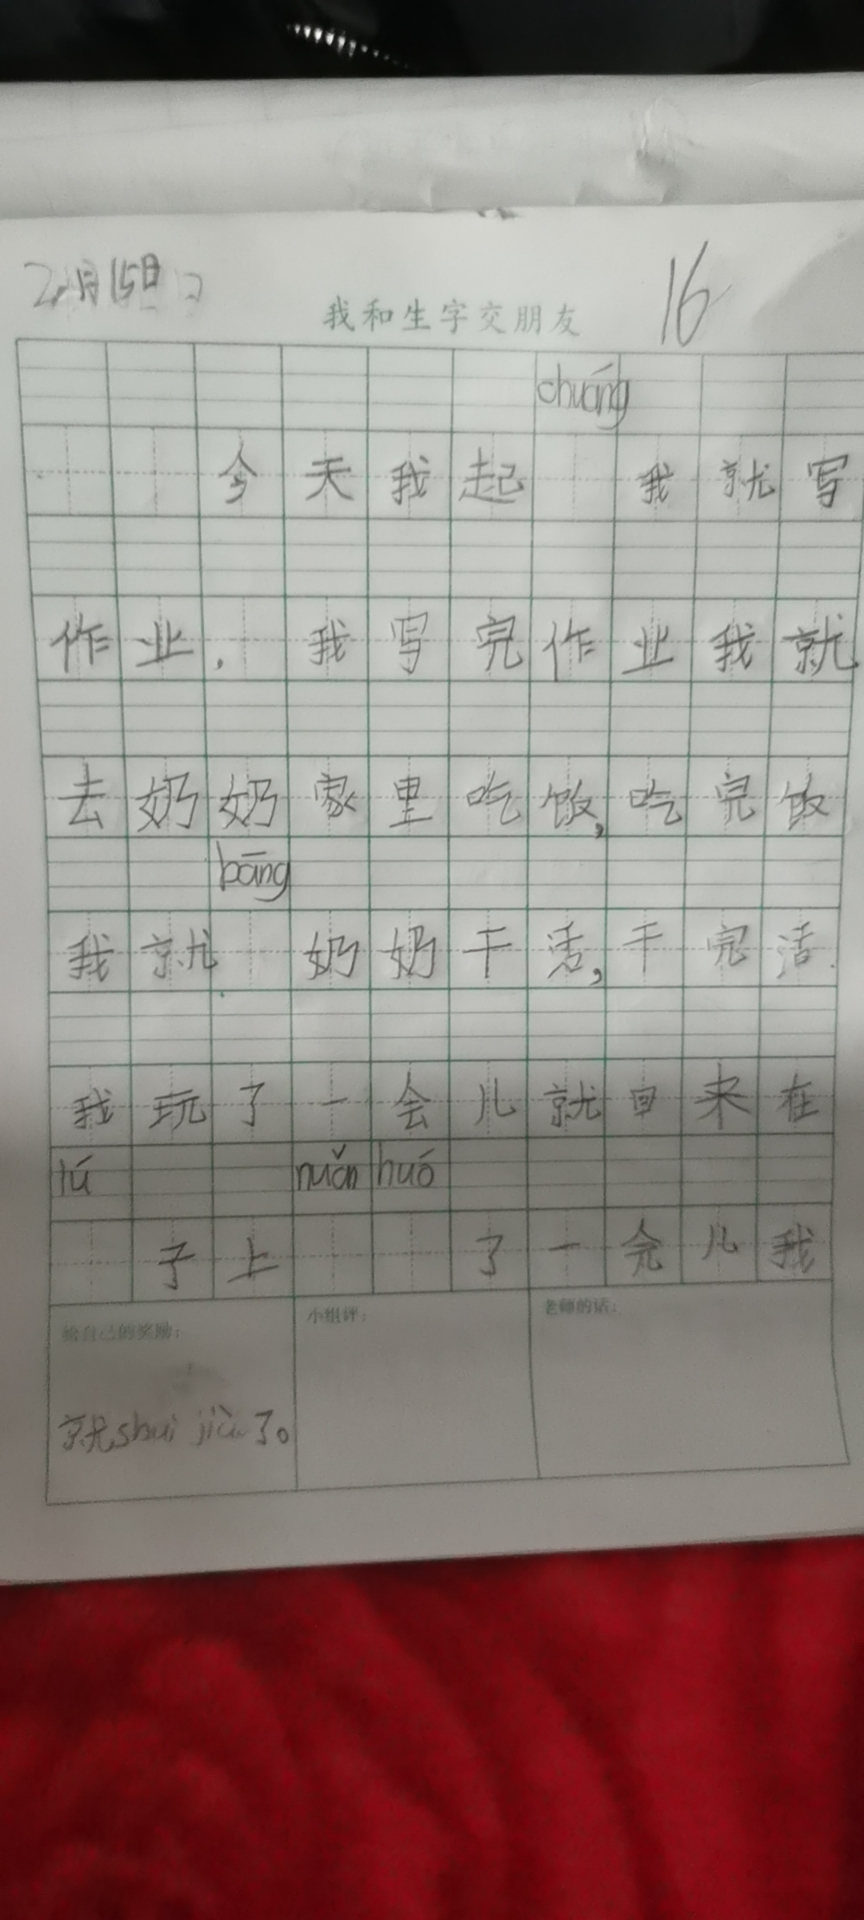 2月15日
我和生字交朋友
16
chuáng
今天我起 我就写
作业，我写完作业我就
去奶奶家里吃饭，吃完饭
bāng
我就 奶奶干活，干完活
我玩了一会儿就回来在
lú nuǎn huó
子上 了一会儿我
给自己的奖励：
小组评：
老师的话：
就shui jiù了。